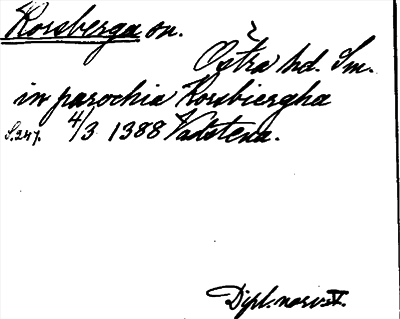 Korsberga sn.
Östra hd. Sm.
in parochia Korsbiergha
S.247. 4/3 1388 Vatstena.
Dipl. norv. V.